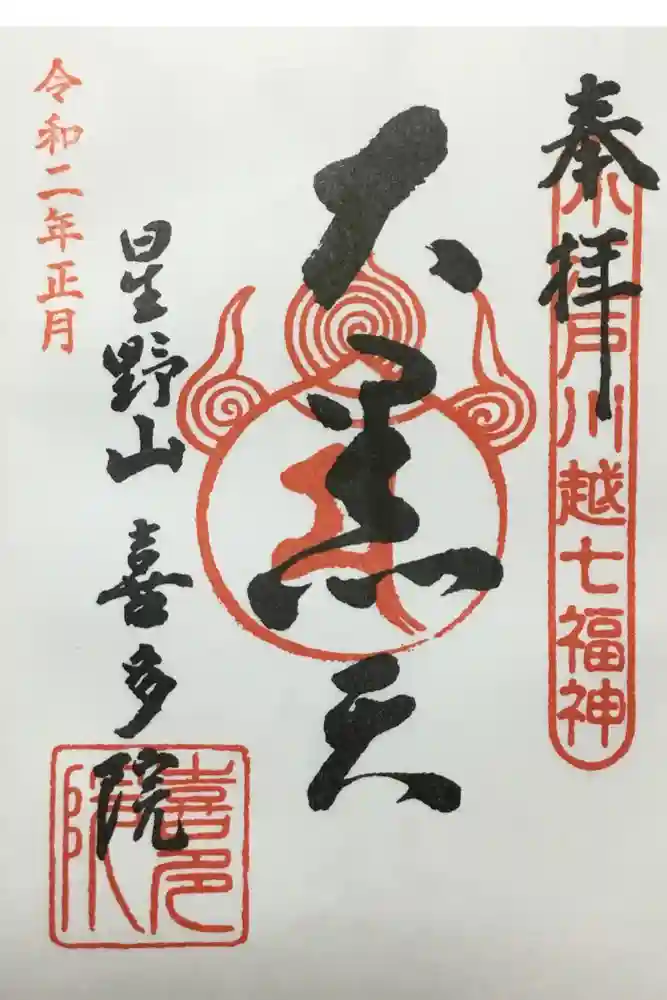 奉拝
小江戸川越七福神
大黒天
星野山 喜多院
喜多院
令和二年正月